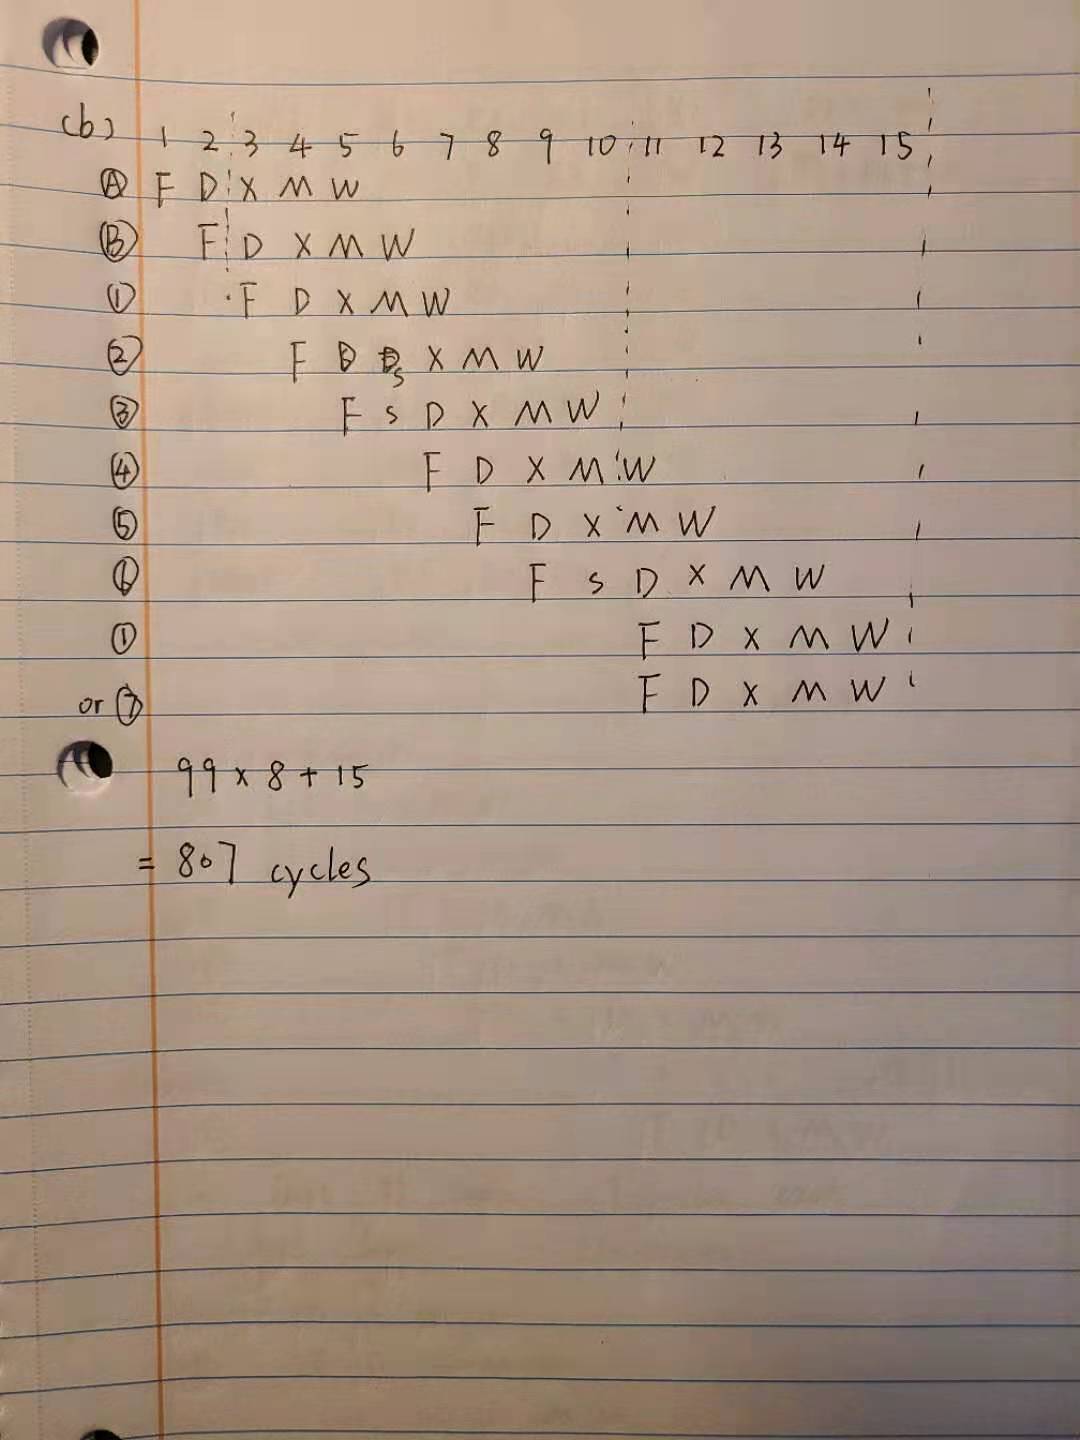 (b) 1 2 3 4 5 6 7 8 9 10 11 12 13 14 15
Ⓐ F D X M W
Ⓑ F D X M W
① F D X M W
② F D s X M W
③ F s D X M W
④ F D X M W
⑤ F D X M W
⑥ F s D X M W
① F D X M W
or ⑦ F D X M W
99 x 8 + 15
= 807 cycles